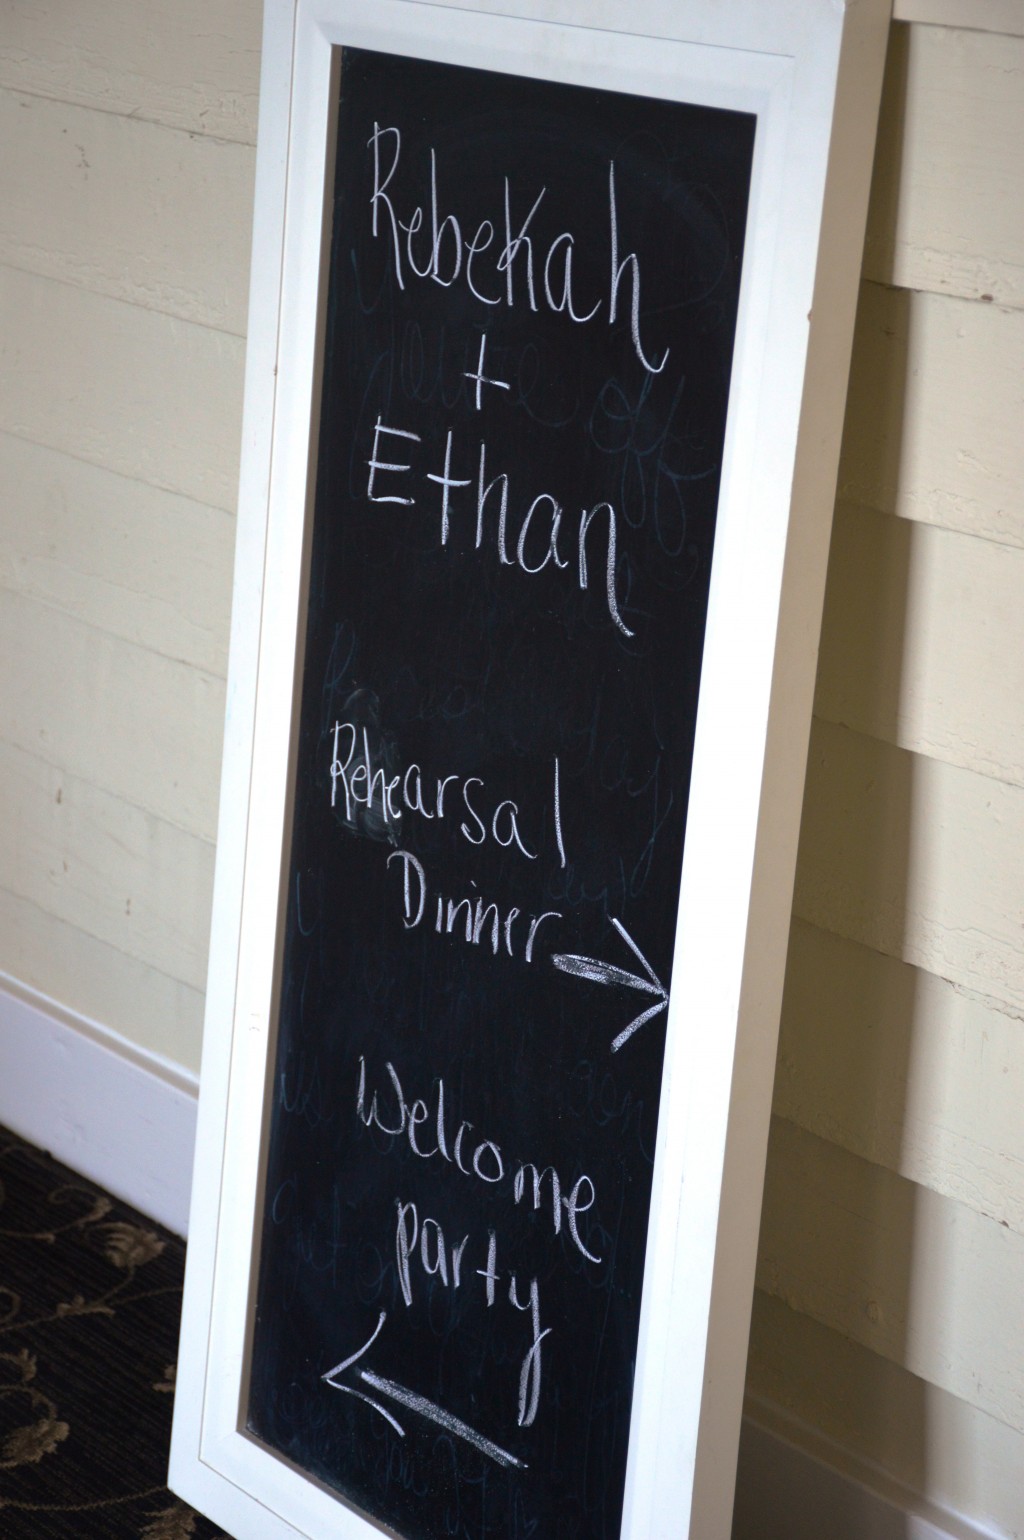 RebeKah
+
Ethan
Rehearsal
Dinner →
Welcome
party
←